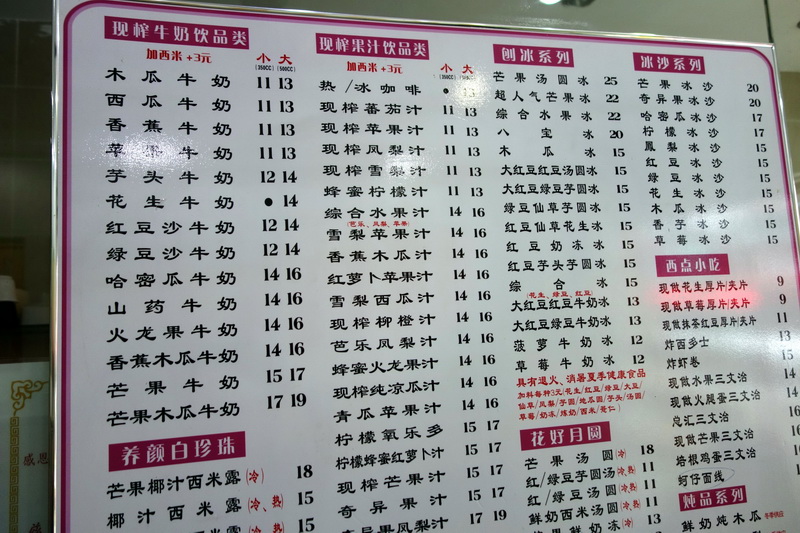 现榨牛奶饮品类
加西米+3元 小 大
(360CC) (500CC)
木瓜牛奶 11 13
西瓜牛奶 11 13
香蕉牛奶 11 13
苹果牛奶 11 13
芋头牛奶 12 14
花生牛奶 ● 14
红豆沙牛奶 12 14
绿豆沙牛奶 12 14
哈密瓜牛奶 14 16
山药牛奶 14 16
火龙果牛奶 14 16
香蕉木瓜牛奶 14 16
芒果牛奶 15 17
芒果木瓜牛奶 17 19
养颜白珍珠
芒果椰汁西米露(冷) 18
椰汁西米露(冷、热) 15
现榨果汁饮品类
加西米+3元 小 大
热/冰咖啡 ● 13
现榨蕃茄汁 11 13
现榨苹果汁 11 13
现榨凤梨汁 11 13
现榨雪梨汁 11 13
蜂蜜柠檬汁 11 13
综合水果汁 14 16
(芭乐、凤梨、苹果)
雪梨苹果汁 14 16
香蕉木瓜汁 14 16
红萝卜苹果汁 14 16
雪梨西瓜汁 14 16
现榨柳橙汁 14 16
芭乐凤梨汁 14 16
蜂蜜火龙果汁 14 16
现榨纯凉瓜汁 14 16
青瓜苹果汁 14 16
柠檬氧乐多 15 17
柠檬蜂蜜红萝卜汁 15 17
现榨芒果汁 15 17
奇异果汁 15 17
奇异果凤梨汁 17 19
刨冰系列
芒果汤圆冰 25
超人气芒果冰 22
综合水果冰 22
八宝冰 20
木瓜冰 15
大红豆红豆汤圆冰 15
大红豆绿豆芋圆冰 15
绿豆仙草芋圆冰 15
红豆仙草花生冰 15
红豆奶冻冰 15
红豆芋头芋圆冰 15
综合冰 15
(花生、绿豆、红豆)
大红豆红豆牛奶冰 13
大红豆绿豆牛奶冰 13
菠萝牛奶冰 12
草莓牛奶冰 12
具有退火、消暑夏季健康食品
加料每种3元/花生/红豆/绿豆/大豆/
仙草/凤梨/芋圆/地瓜圆/芋头/汤圆/
草莓/奶冻/炼奶/西米/薏仁)
花好月圆
芒果汤圆(冷) 18
红/绿豆芋圆汤(冷、热) 11
红/绿豆汤圆(冷、热) 11
鲜奶西米汤圆(冷、热) 11
鲜果鲜奶冻(冷) 13
冰沙系列
芒果冰沙 20
奇异果冰沙 20
哈密瓜冰沙 17
柠檬冰沙 17
凤梨冰沙 15
红豆冰沙 15
绿豆冰沙 15
花生冰沙 15
木瓜冰沙 15
香芋冰沙 15
草莓冰沙 15
西点小吃
现做花生厚片/夹片 9
现做草莓厚片/夹片 9
现做抹茶红豆厚片/夹片 11
炸西多士
炸虾卷
现做水果三文治
现做火腿蛋三文治
总汇三文治
现做芒果三文治
培根鸡蛋三文治
蚵仔面线
炖品系列
鲜奶炖木瓜
感恩